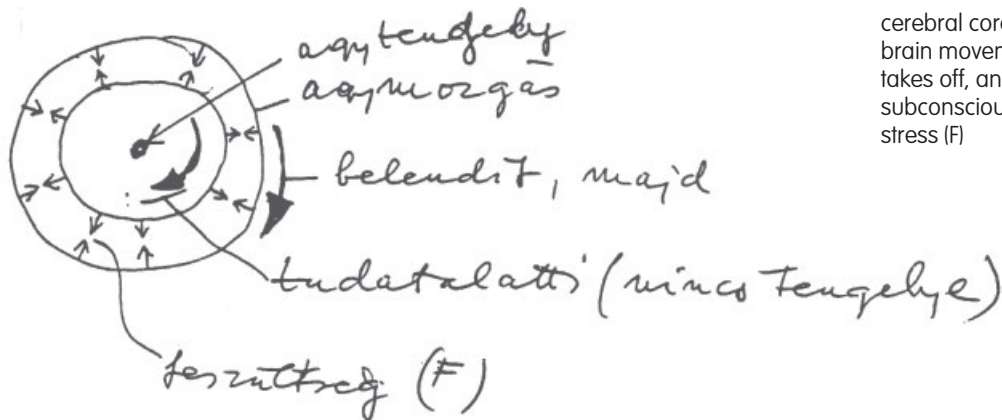 agytengely
agymozgás
belendít, majd
tudatalatti (nincs tengelye)
feszültség (F)
cerebral
brain
takes off, an
subconsciou
stress (F)